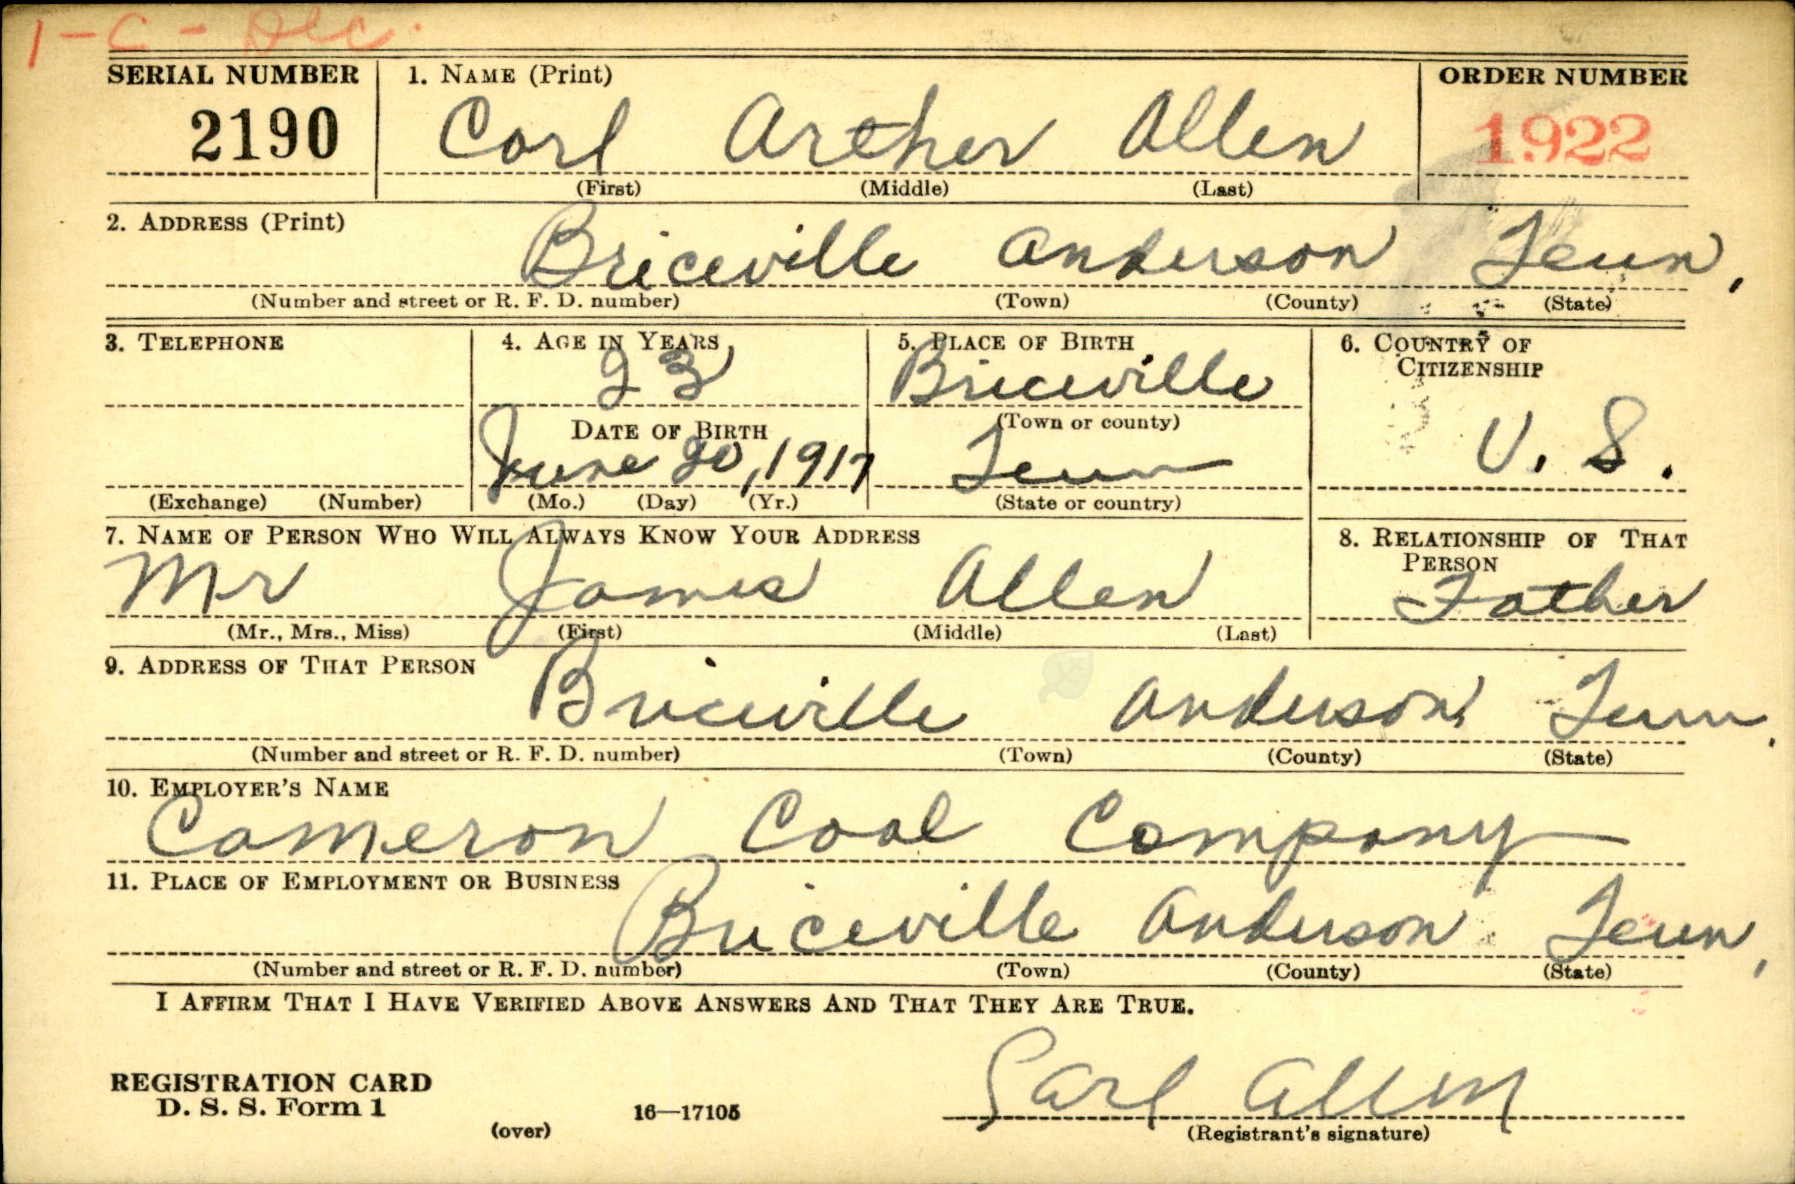 1-C-Dec.
SERIAL NUMBER 1. NAME (Print) ORDER NUMBER
2190 Carl Arther Allen 1922
(First) (Middle) (Last)
2. ADDRESS (Print)
Briceville Anderson Tenn,
(Number and street or R. F. D. number) (Town) (County) (State)
3. TELEPHONE 4. AGE IN YEARS 5. PLACE OF BIRTH 6. COUNTRY OF
CITIZENSHIP
23 Briceville
DATE OF BIRTH (Town or county)
June 20, 1917 Tenn U. S.
(Exchange) (Number) (Mo.) (Day) (Yr.) (State or country)
7. NAME OF PERSON WHO WILL ALWAYS KNOW YOUR ADDRESS 8. RELATIONSHIP OF THAT
PERSON
Mr James Allen Father
(Mr., Mrs., Miss) (First) (Middle) (Last)
9. ADDRESS OF THAT PERSON
Briceville Anderson Tenn.
(Number and street or R. F. D. number) (Town) (County) (State)
10. EMPLOYER'S NAME
Cameron Coal Company
11. PLACE OF EMPLOYMENT OR BUSINESS
Briceville Anderson Tenn,
(Number and street or R. F. D. number) (Town) (County) (State)
I AFFIRM THAT I HAVE VERIFIED ABOVE ANSWERS AND THAT THEY ARE TRUE.
Carl Allen
REGISTRATION CARD
D. S. S. Form 1 16—17105
(over) (Registrant's signature)